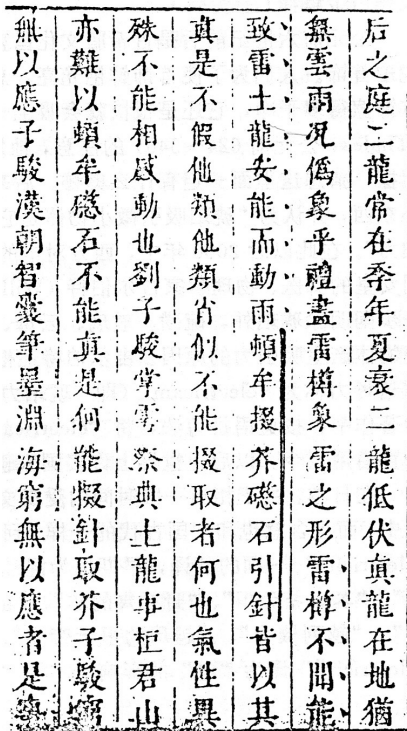 后之庭二龍常在季年夏衰二龍低伏真龍在地猶
無雲雨况僞象乎禮畫雷樽象雷之形雷樽不聞能
致雷土龍安能而動雨頓牟掇芥磁石引針皆以其
真是不假他類他類肖似不能掇取者何也氣性異
殊不能相感動也劉子駿掌雩祭典土龍事桓君山
亦難以頓牟磁石不能真是何能掇針取芥子駿窮
無以應子駿漢朝智囊筆墨淵海窮無以應者是